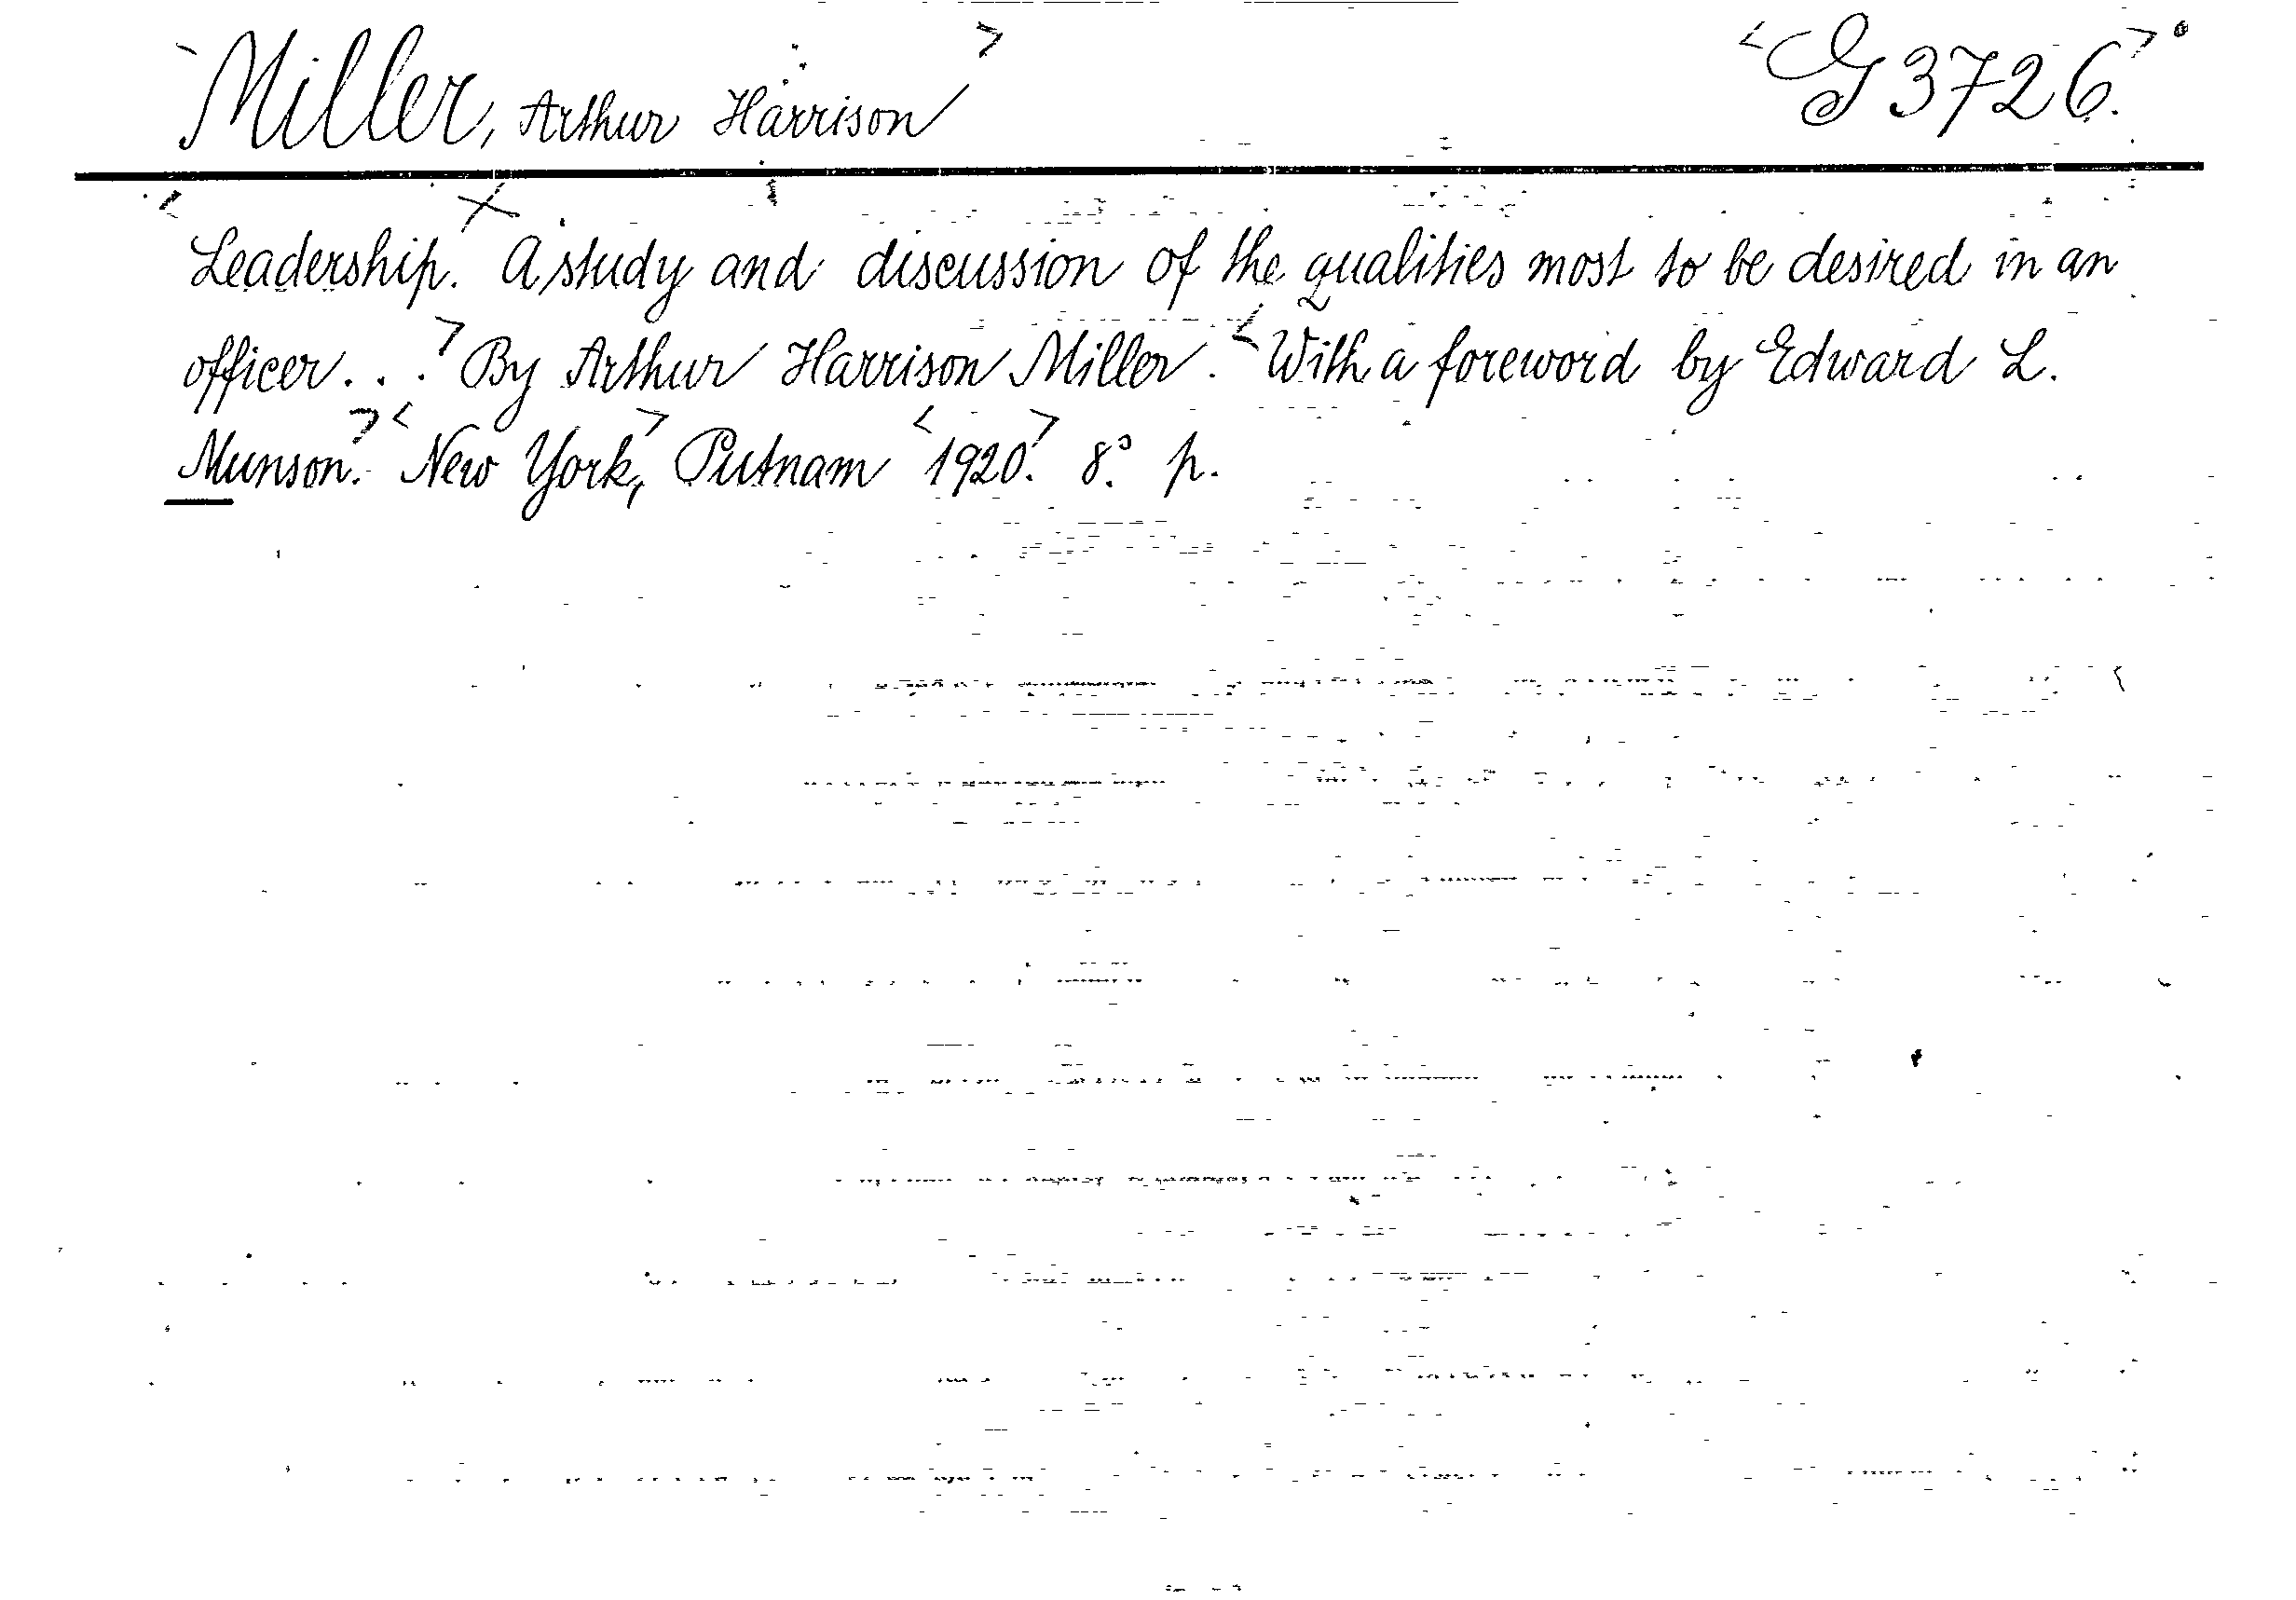 Miller, Arthur Harrison G 3726.
Leadership. A study and discussion of the qualities most to be desired in an
officer... By Arthur Harrison Miller. With a foreword by Edward L.
Munson. New York, Putnam 1920. 8° p.